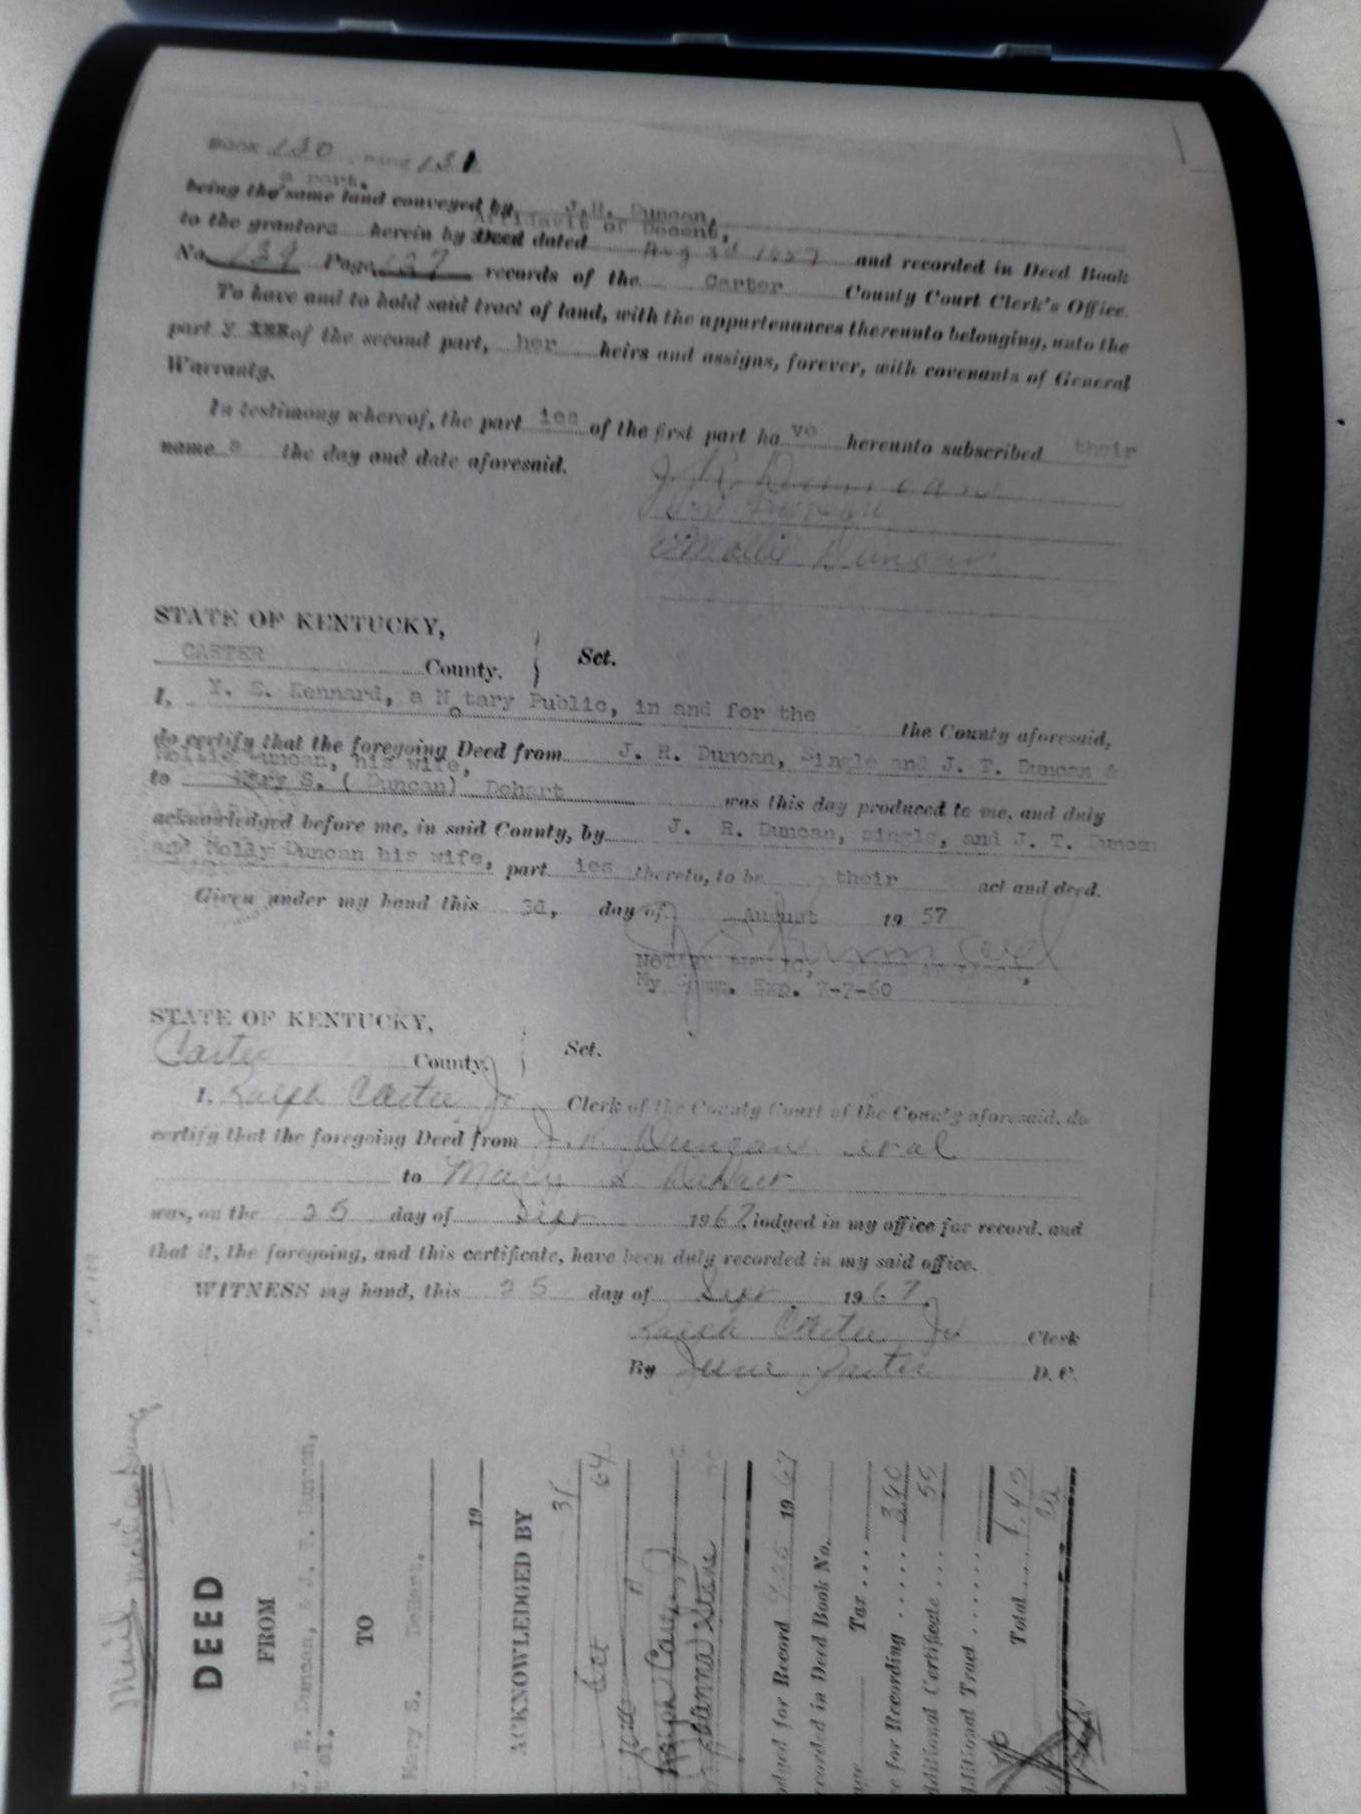 BOOK 130 PAGE 131
a part.
being the same land conveyed by J.H. Duncan,
Affidavit of Decent,
to the grantors herein by Deed dated Aug 3d 1957 and recorded in Deed Book
No. 139 Page 127 records of the Carter County Court Clerk's Office.
To have and to hold said tract of land, with the appurtenances thereunto belonging, unto the
part y XXX of the second part, her heirs and assigns, forever, with covenants of General
Warranty.
In testimony whereof, the part ies of the first part ha ve hereunto subscribed their
name s the day and date aforesaid.
J. R. Duncan
Duncan
Mollie Duncan
STATE OF KENTUCKY,
CARTER County. Sct.
I, Y. S. Kennard, a Notary Public, in and for the the County aforesaid,
do certify that the foregoing Deed from J. R. Duncan, Single and J. T. Duncan &
Mollie Duncan, his wife,
to Mary S. ( Duncan) Dehart was this day produced to me, and duly
acknowledged before me, in said County, by J. R. Duncan, single, and J. T. Duncan
and Molly Duncan his wife, part ies thereto, to be their act and deed.
Given under my hand this 3d, day of August 19 57
My Comm. Exp. 7-7-60
STATE OF KENTUCKY,
Carter County. Sct.
I, Ralph Carter Jr Clerk of the County Court of the County aforesaid, do
certify that the foregoing Deed from J. R. Duncan et al
to Mary S Dehart
was, on the 25 day of Sept 1967, lodged in my office for record, and
that it, the foregoing, and this certificate, have been duly recorded in my said office.
WITNESS my hand, this 25 day of Sept 1967.
Ralph Carter Jr Clerk
By June Carter D. C.
Mail
DEED
FROM
J. R. Duncan, & J. T. Duncan,
et al.
TO
Mary S. Dehart.
19
ACKNOWLEDGED BY
31
Oct 64
Ralph Carter Jr
Stens
odged for Record 9-25 1967
ecorded in Deed Book No.
age Tax
e for Recording 3.90
dditional Certificate 55
dditional Tract
Total